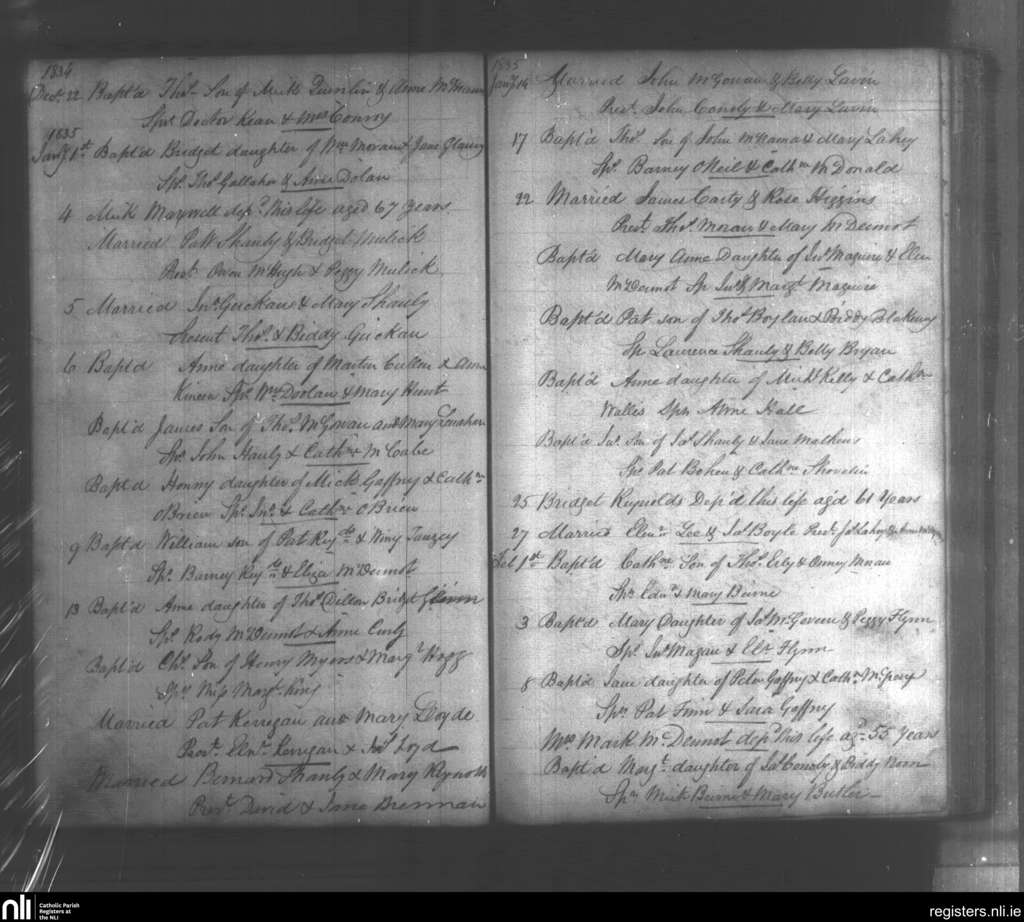 1834
Decr. 22 Bapt'd Thos. Son of Mick Quinlin & Anne McMann
Spr. Doctor Kean & Mrs Conroy
1835
Jany 1st Bapt'd Bridget daughter of Wm Moran & Jane Glancy
Sps. Thos Gallaher & Anne Dolan
4 Mick Maxwell depd. this life aged 67 Years
Married Patt Shanly & Bridget Mulick
Prest. Owen McHugh & Peggy Mulick
5 Married Jno. Guckan & Mary Shanly
Present Thos. & Biddy Guckan
6 Bapt'd Anne daughter of Martin Cullen & Anne
Sps. Wm. Doolan & Mary Hunt
Bapt'd James Son of Thos. McGowan and Mary Lenahan
Sps. John Hanly & Cathne McCabe
Bapt'd Honny daughter of Mick Gaffney & Cathne
O'Brien Sps. Jno. & Cathne O'Brien
9 Bapt'd William son of Pat Reylds & Winy Tanzey
Sps. Barney Reylds & Eliza McDermot
13 Bapt'd Anne daughter of Thos Dillon Bridget
Sps. Rody McDermot & Anne Curly
Bapt'd Chs. Son of Henry Myers & Margt. Hogg
Spr. Miss Margt. King
Married Pat Kerrigan and Mary Loyde
Prest. Elnr. Kerrigan & Loyd
Married Bernard Shanly & Mary Reynolds
Prest. David & Jane Brennan
1835
Jany 14 Married John McGowan & Betty Lavin
Prest. John Conoly & Mary Lavin
17 Bapt'd Thos. Son of John McNama & Mary Lahey
Sps. Barney O'Neil & Cathne McDonald
22 Married James Carty & Rose Higgins
Prest. Thos. Moran & Mary McDermot
Bapt'd Mary Anne Daughter of Jno. Maguire & Ellen
McDermot Sp. Jno & Margt. Maguire
Bapt'd Pat son of Thos Boylan & Biddy Blakeney
Sp. Lawrence Shanly & Betty Bryan
Bapt'd Anne daughter of Mick Kelly & Cathne
Walles Spr. Anne Hall
Bapt'd Jno. Son of Jas. Shanly & Jane Mathews
Sps. Pat Bohen & Cathne Shovelin
25 Bridget Reynolds Dep'd this life aged 61 Years
27 Married Elenr Lee & Jas. Boyle Prest.
Feb 1st Bapt'd Cathne Son of Thos. & Onney Moran
Sps. Edwd & Mary Beirne
3 Bapt'd Mary Daughter of Jas. McGoveren & Peggy Flynn
Sps. Jno Magan & Elr. Flynn
8 Bapt'd Jane daughter of Peter Gaffney & Cathne
Sprs Pat Finn & Sara Gaffney
Mrs. Mark McDermot depd this life agd. 55 Years
Bapt'd Margt. daughter of Jas. Conoly & Biddy
Sps. Mick Beirne & Mary Butler
nli
Catholic Parish
Registers at
the NLI
registers.nli.ie